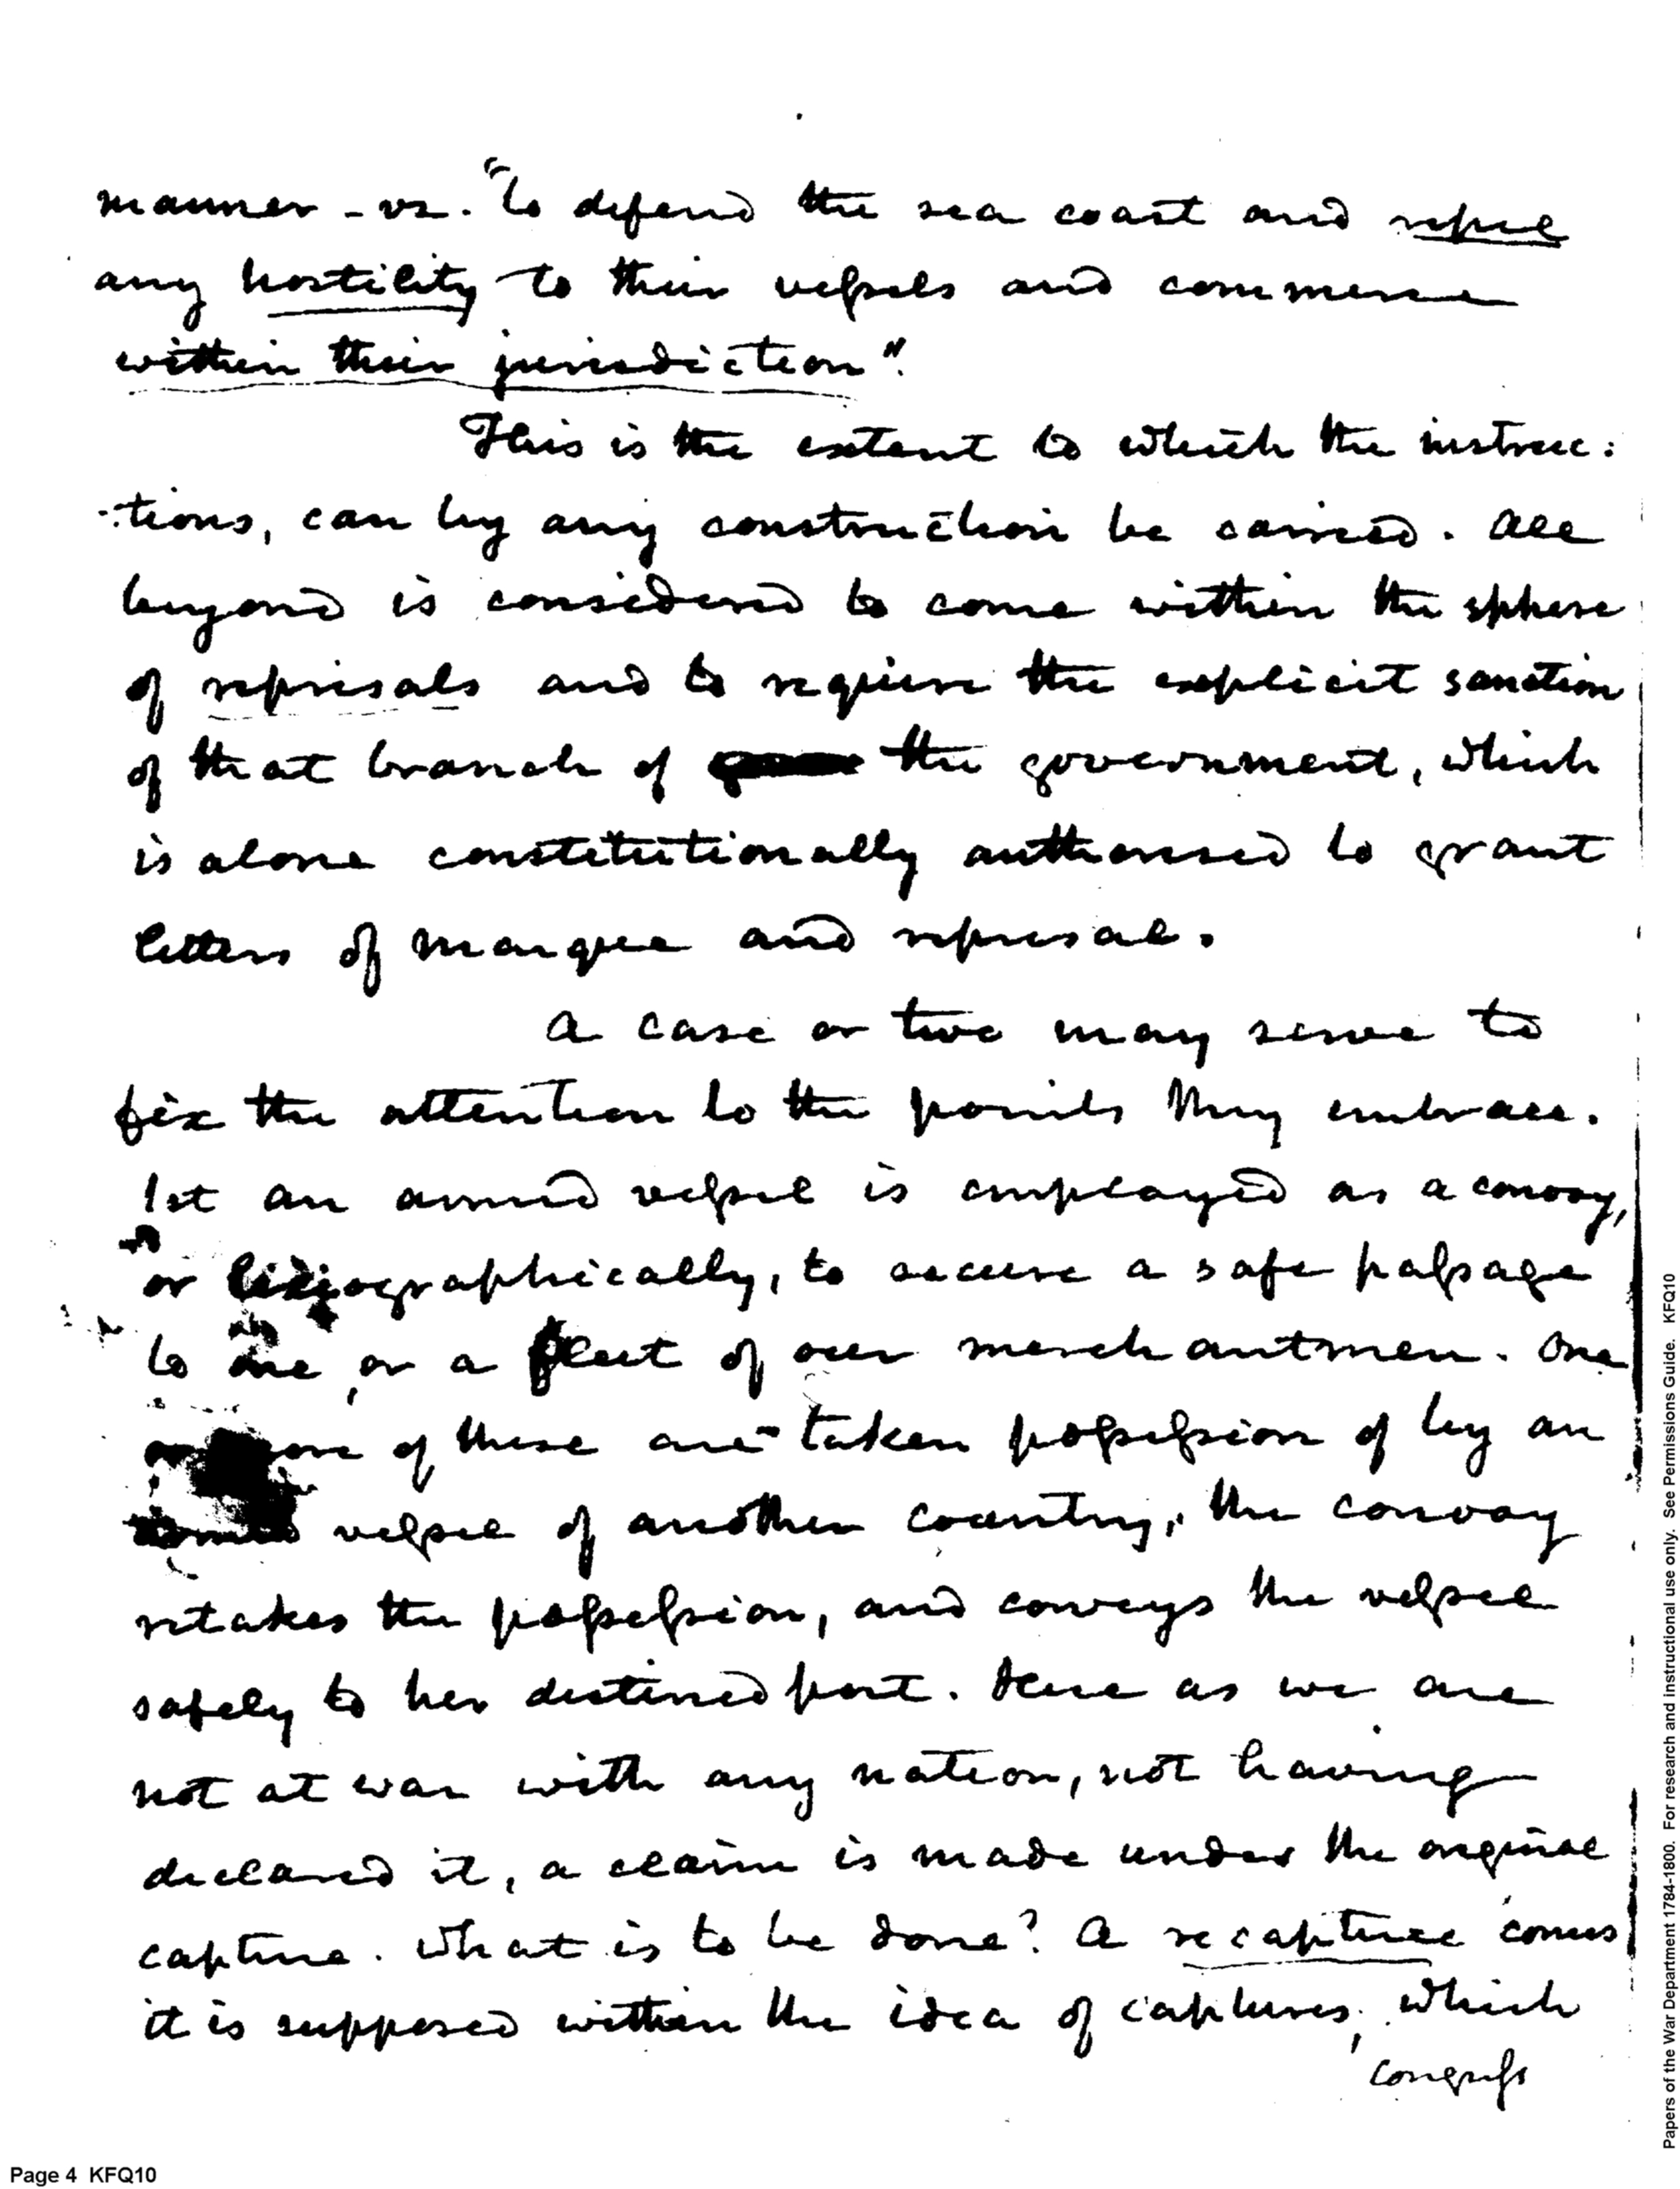 manner - vz. "to defend the sea coast and repel
any hostility to their vessels and commerce
within their jurisdiction".
This is the extent to which the instruc:
:tions, can by any construction be carried. All
beyond is considered to come within the sphere
of reprisals and to require the explicit sanction
of that branch of the government, which
is alone constitutionally authorised to grant
letters of marque and reprisal.
A case or two may serve to
fix the attention to the points they embrace.
1st an armed vessel is employed as a convoy,
or lexicographically, to secure a safe passage
to one, or a fleet of our merchantmen. One
or more of these are taken possession of by an
armed vessel of another country, the convoy
retakes the possession, and conveys the vessel
safely to her destined port. Here as we are
not at war with any nation, not having
declared it, a claim is made under the original
capture. What is to be done? A recapture comes
it is supposed within the idea of captures, which
Congress
Page 4 KFQ10
Papers of the War Department 1784-1800. For research and instructional use only. See Permissions Guide. KFQ10